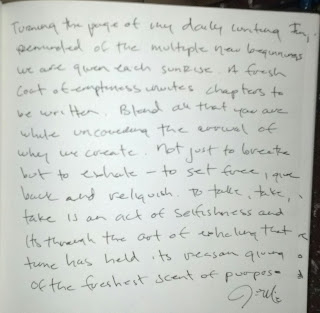 Turning the page of my daily writing I'm,
reminded of the multiple new beginnings
we are given each sunrise. A fresh
coat of emptiness invites chapters to
be written. Blend all that you are
while uncovering the arrival of
why we create. Not just to breathe
but to exhale – to set free, give
back and relinquish. To take, take,
take is an act of selfishness and
its through the art of exhaling that
time has held its reason giving
of the freshest scent of purpose